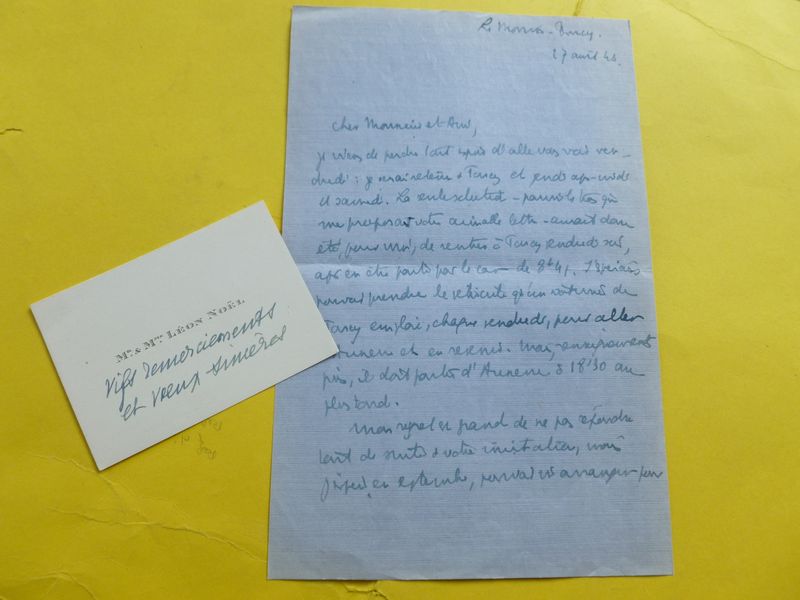 27 août 46.
Cher Monsieur et Ami,
je viens de perdre tout espoir d'aller vous voir ven-
dredi : je serai retenu à Toucy et après-midi
et samedi. La seule solution - parmi les
me proposait votre aimable lettre - aurait donc
été, pour moi, de rentrer à Toucy vendredi soir,
après en être parti par le car de 8h 41. J'espérais
pouvoir prendre le véhicule qu'un de
Toucy emploie, chaque vendredi, pour aller
et en revenir. Mais, renseignements
pris, il doit partir d'Auxerre à 18h30 au
plus tard.
Mon regret est grand de ne pas répondre
tout de suite à votre invitation, mais
j'espère, en septembre, pouvoir m'arranger pour
Mr & Mme LÉON NOËL
Vifs remerciements
et vœux sincères